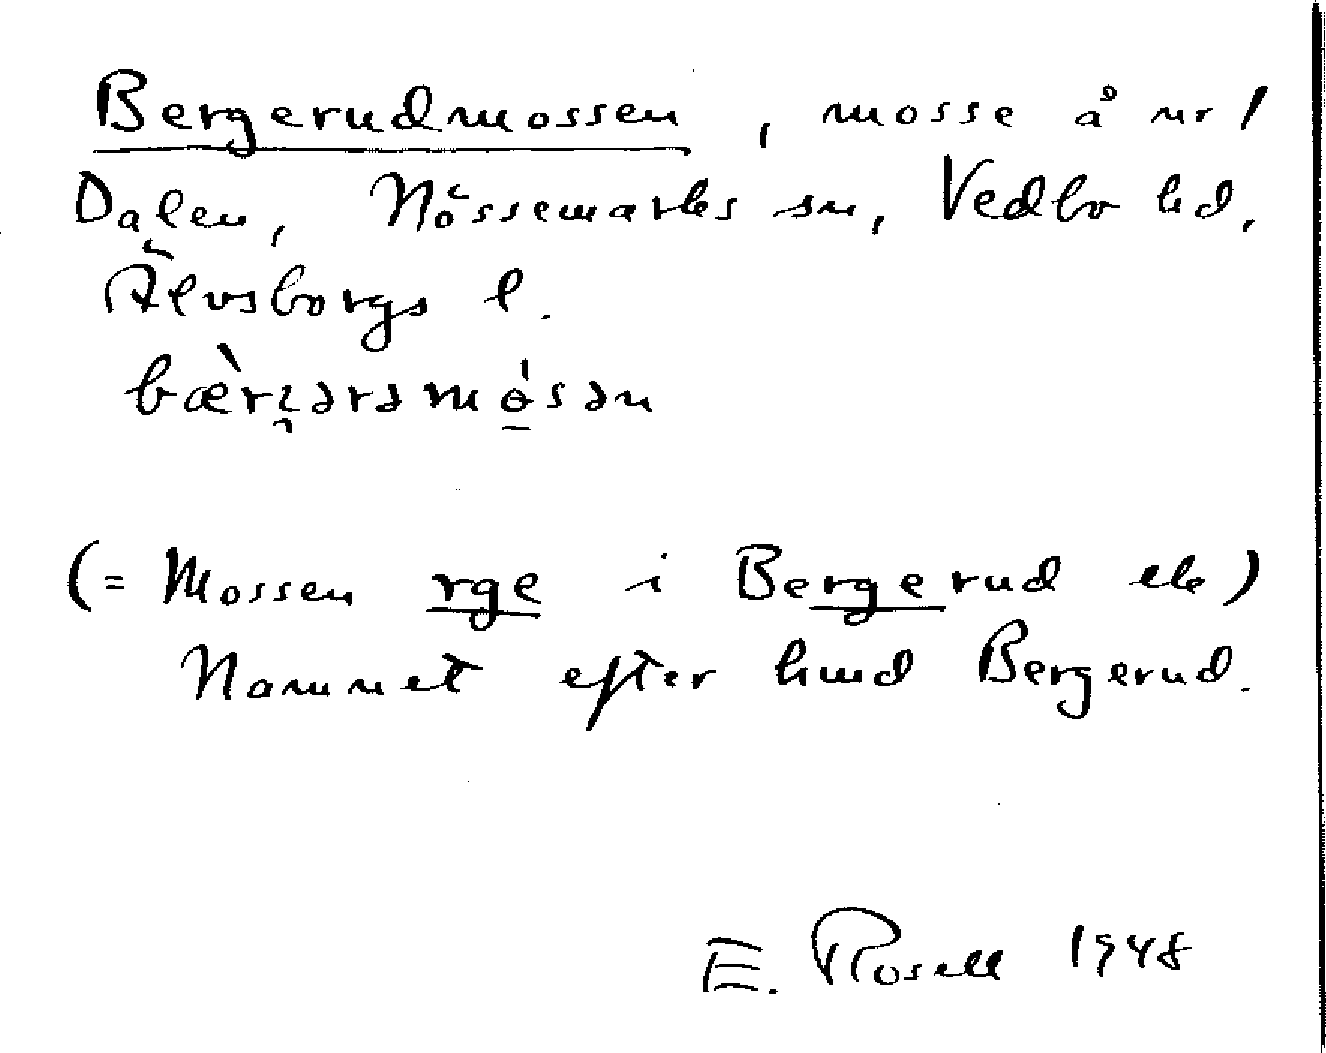 Bergerudmossen, mosse å nr 1
Dalen, Nössemarks sn, Vedbo hd,
Älvsborgs l.
(= Mossen rge i Bergerud ek)
Namnet efter hmd Bergerud.
E. Rosell 1948